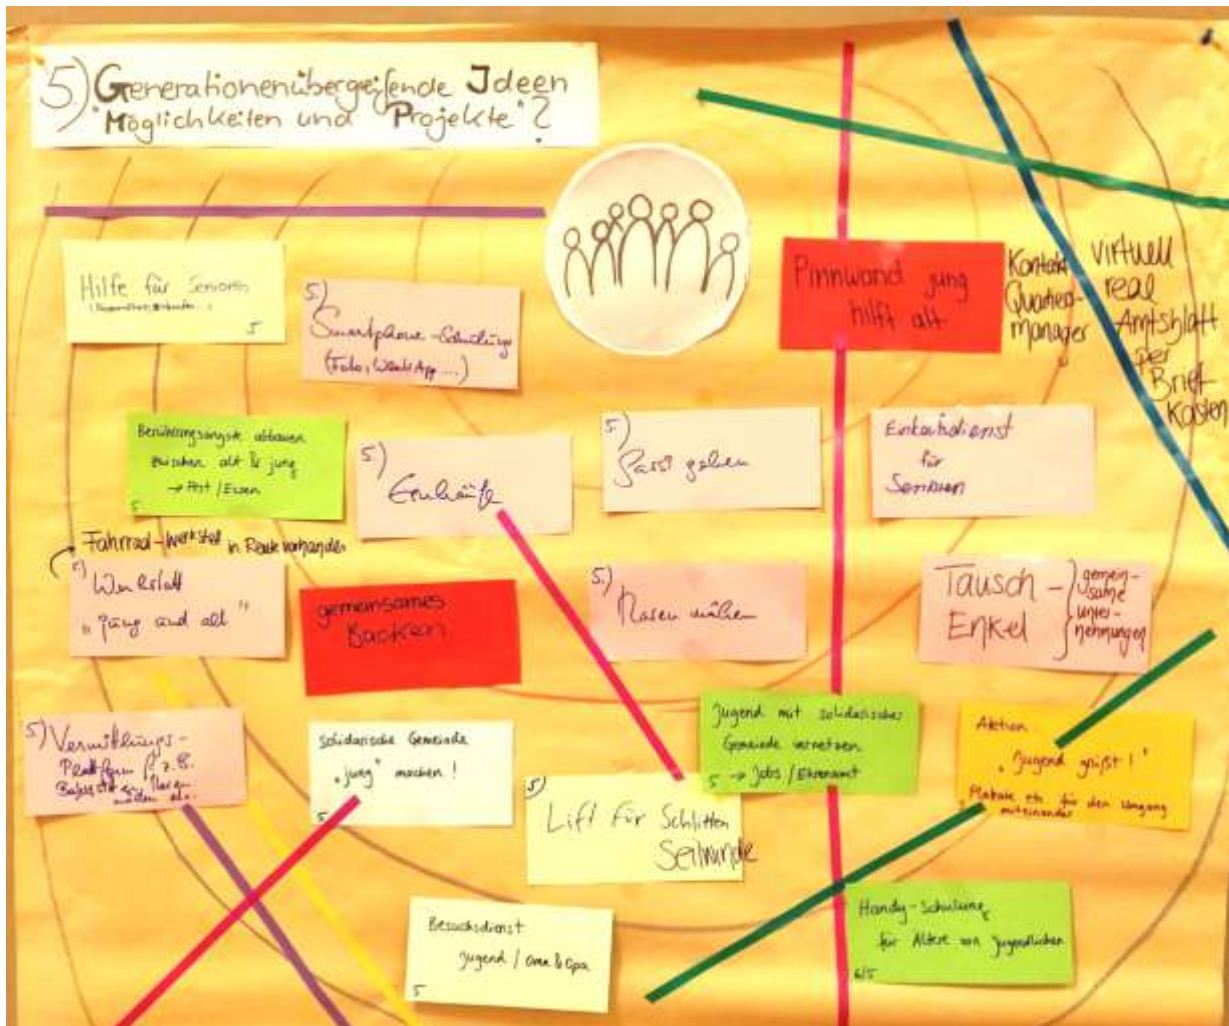 5) Generationenübergeifende Ideen
"Möglichkeiten und Projekte"?
Hilfe für Senioren
5
5.)
Smartphone-Schulung
(Foto, WhatsApp ....)
Pinnwand jung
hilft alt
Kontakt
Quartiers-
manager
virtuell
real
Amtsblatt
per
Brief-
Kasten
Berührungsängste abbauen
zwischen alt & jung
→ /Essen
5
5.)
Einkäufe
5.)
Gassi gehen
Einkaufsdienst
für
Senioren
Fahrrad-Werkstat in Reute vorhanden
5.)
Werkstatt
"jung und alt"
gemeinsames
Backen
5.)
Rasen mähen
Tausch-
Enkel
gemein-
same
unter-
nehmungen
5.)
Vermittlungs-
Plattform f. z.B.
Babysitten, Rasen
mähen etc.
Solidarische Gemeinde
"jung" machen!
5
5)
Lift für Schlitten
Seilwinde
Jugend mit solidarischer
Gemeinde vernetzen
5 → Jobs/Ehrenamt
Aktion
"Jugend grüßt!"
Plakate etc. für den Umgang
miteinander
Besuchsdienst
Jugend / Oma & Opa
5
Handy-Schulung
für Ältere von Jugendlichen
6/5